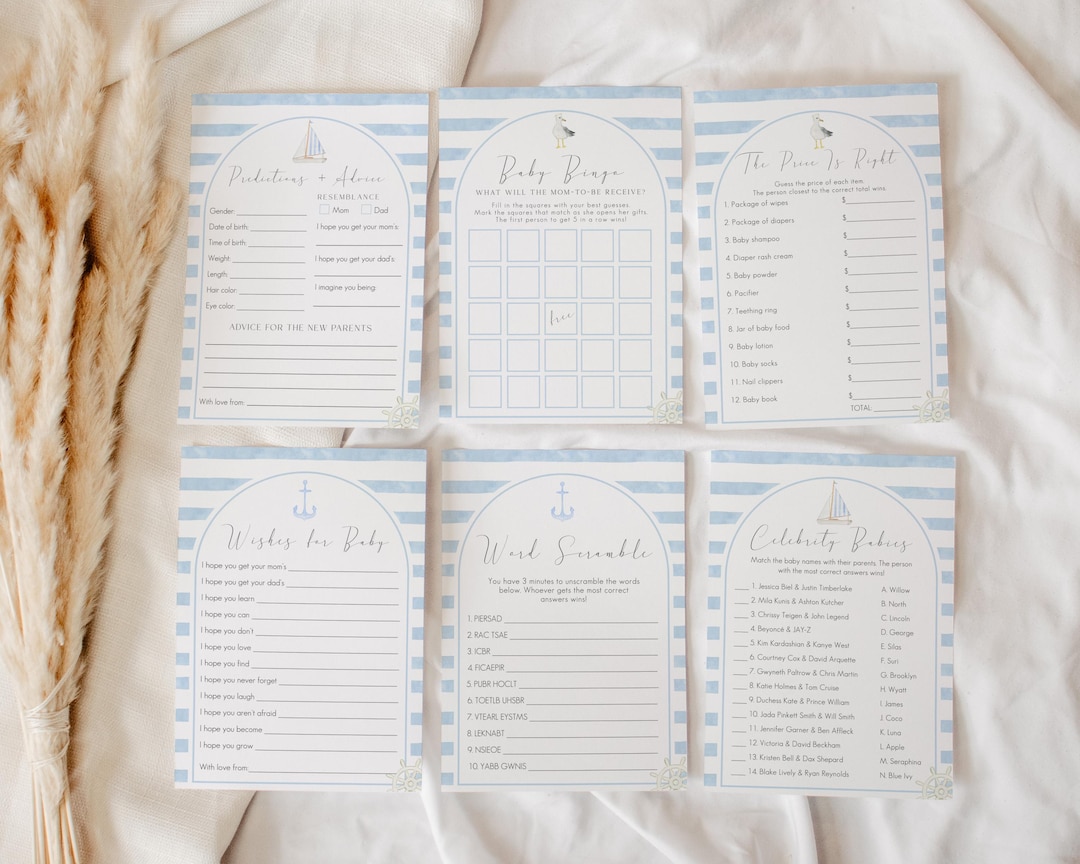 Predictions + Advice
RESEMBLANCE
Mom Dad
Gender:
Date of birth:
Time of birth:
Weight:
Length:
Hair color:
Eye color:
I hope you get your mom's
I hope you get your dad's
I imagine you being:
ADVICE FOR THE NEW PARENTS
With love from:
Baby Bingo
WHAT WILL THE MOM-TO-BE RECEIVE?
Fill in the squares with your best guesses.
Mark the squares that match as she opens her gifts.
The first person to get 5 in a row wins!
free
The Price Is Right
Guess the price of each item.
The person closest to the correct total wins.
1. Package of wipes $
2. Package of diapers $
3. Baby shampoo $
4. Diaper rash cream $
5. Baby powder $
6. Pacifier $
7. Teething ring $
8. Jar of baby food $
9. Baby lotion $
10. Baby socks $
11. Nail clippers $
12. Baby book $
TOTAL:
Wishes for Baby
I hope you get your mom's
I hope you get your dad's
I hope you learn
I hope you can
I hope you don't
I hope you love
I hope you find
I hope you never forget
I hope you laugh
I hope you aren't afraid
I hope you become
I hope you grow
With love from:
Word Scramble
You have 3 minutes to unscramble the words
below. Whoever gets the most correct
answers wins!
1. PIERSAD
2. RAC TSAE
3. ICBR
4. FICAEPIR
5. PUBR HOCLT
6. TOETLB UHSBR
7. VTEARL EYSTMS
8. LEKNABT
9. NSIEOE
10. YABB GWNIS
Celebrity Babies
Match the baby names with their parents. The person
with the most correct answers wins!
1. Jessica Biel & Justin Timberlake A. Willow
2. Mila Kunis & Ashton Kutcher B. North
3. Chrissy Teigen & John Legend C. Lincoln
4. Beyoncé & JAY-Z D. George
5. Kim Kardashian & Kanye West E. Silas
6. Courtney Cox & David Arquette F. Suri
7. Gwyneth Paltrow & Chris Martin G. Brooklyn
8. Katie Holmes & Tom Cruise H. Wyatt
9. Duchess Kate & Prince William I. James
10. Jada Pinkett Smith & Will Smith J. Coco
11. Jennifer Garner & Ben Affleck K. Luna
12. Victoria & David Beckham L. Apple
13. Kristen Bell & Dax Shepard M. Seraphina
14. Blake Lively & Ryan Reynolds N. Blue Ivy